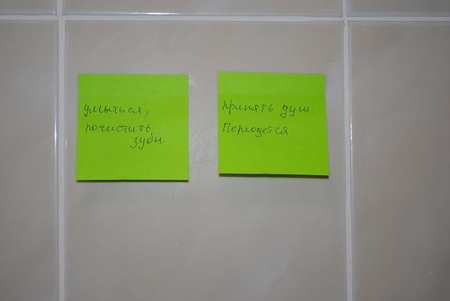 умыться,
почистить
зубы.
принять душ.
Переодется